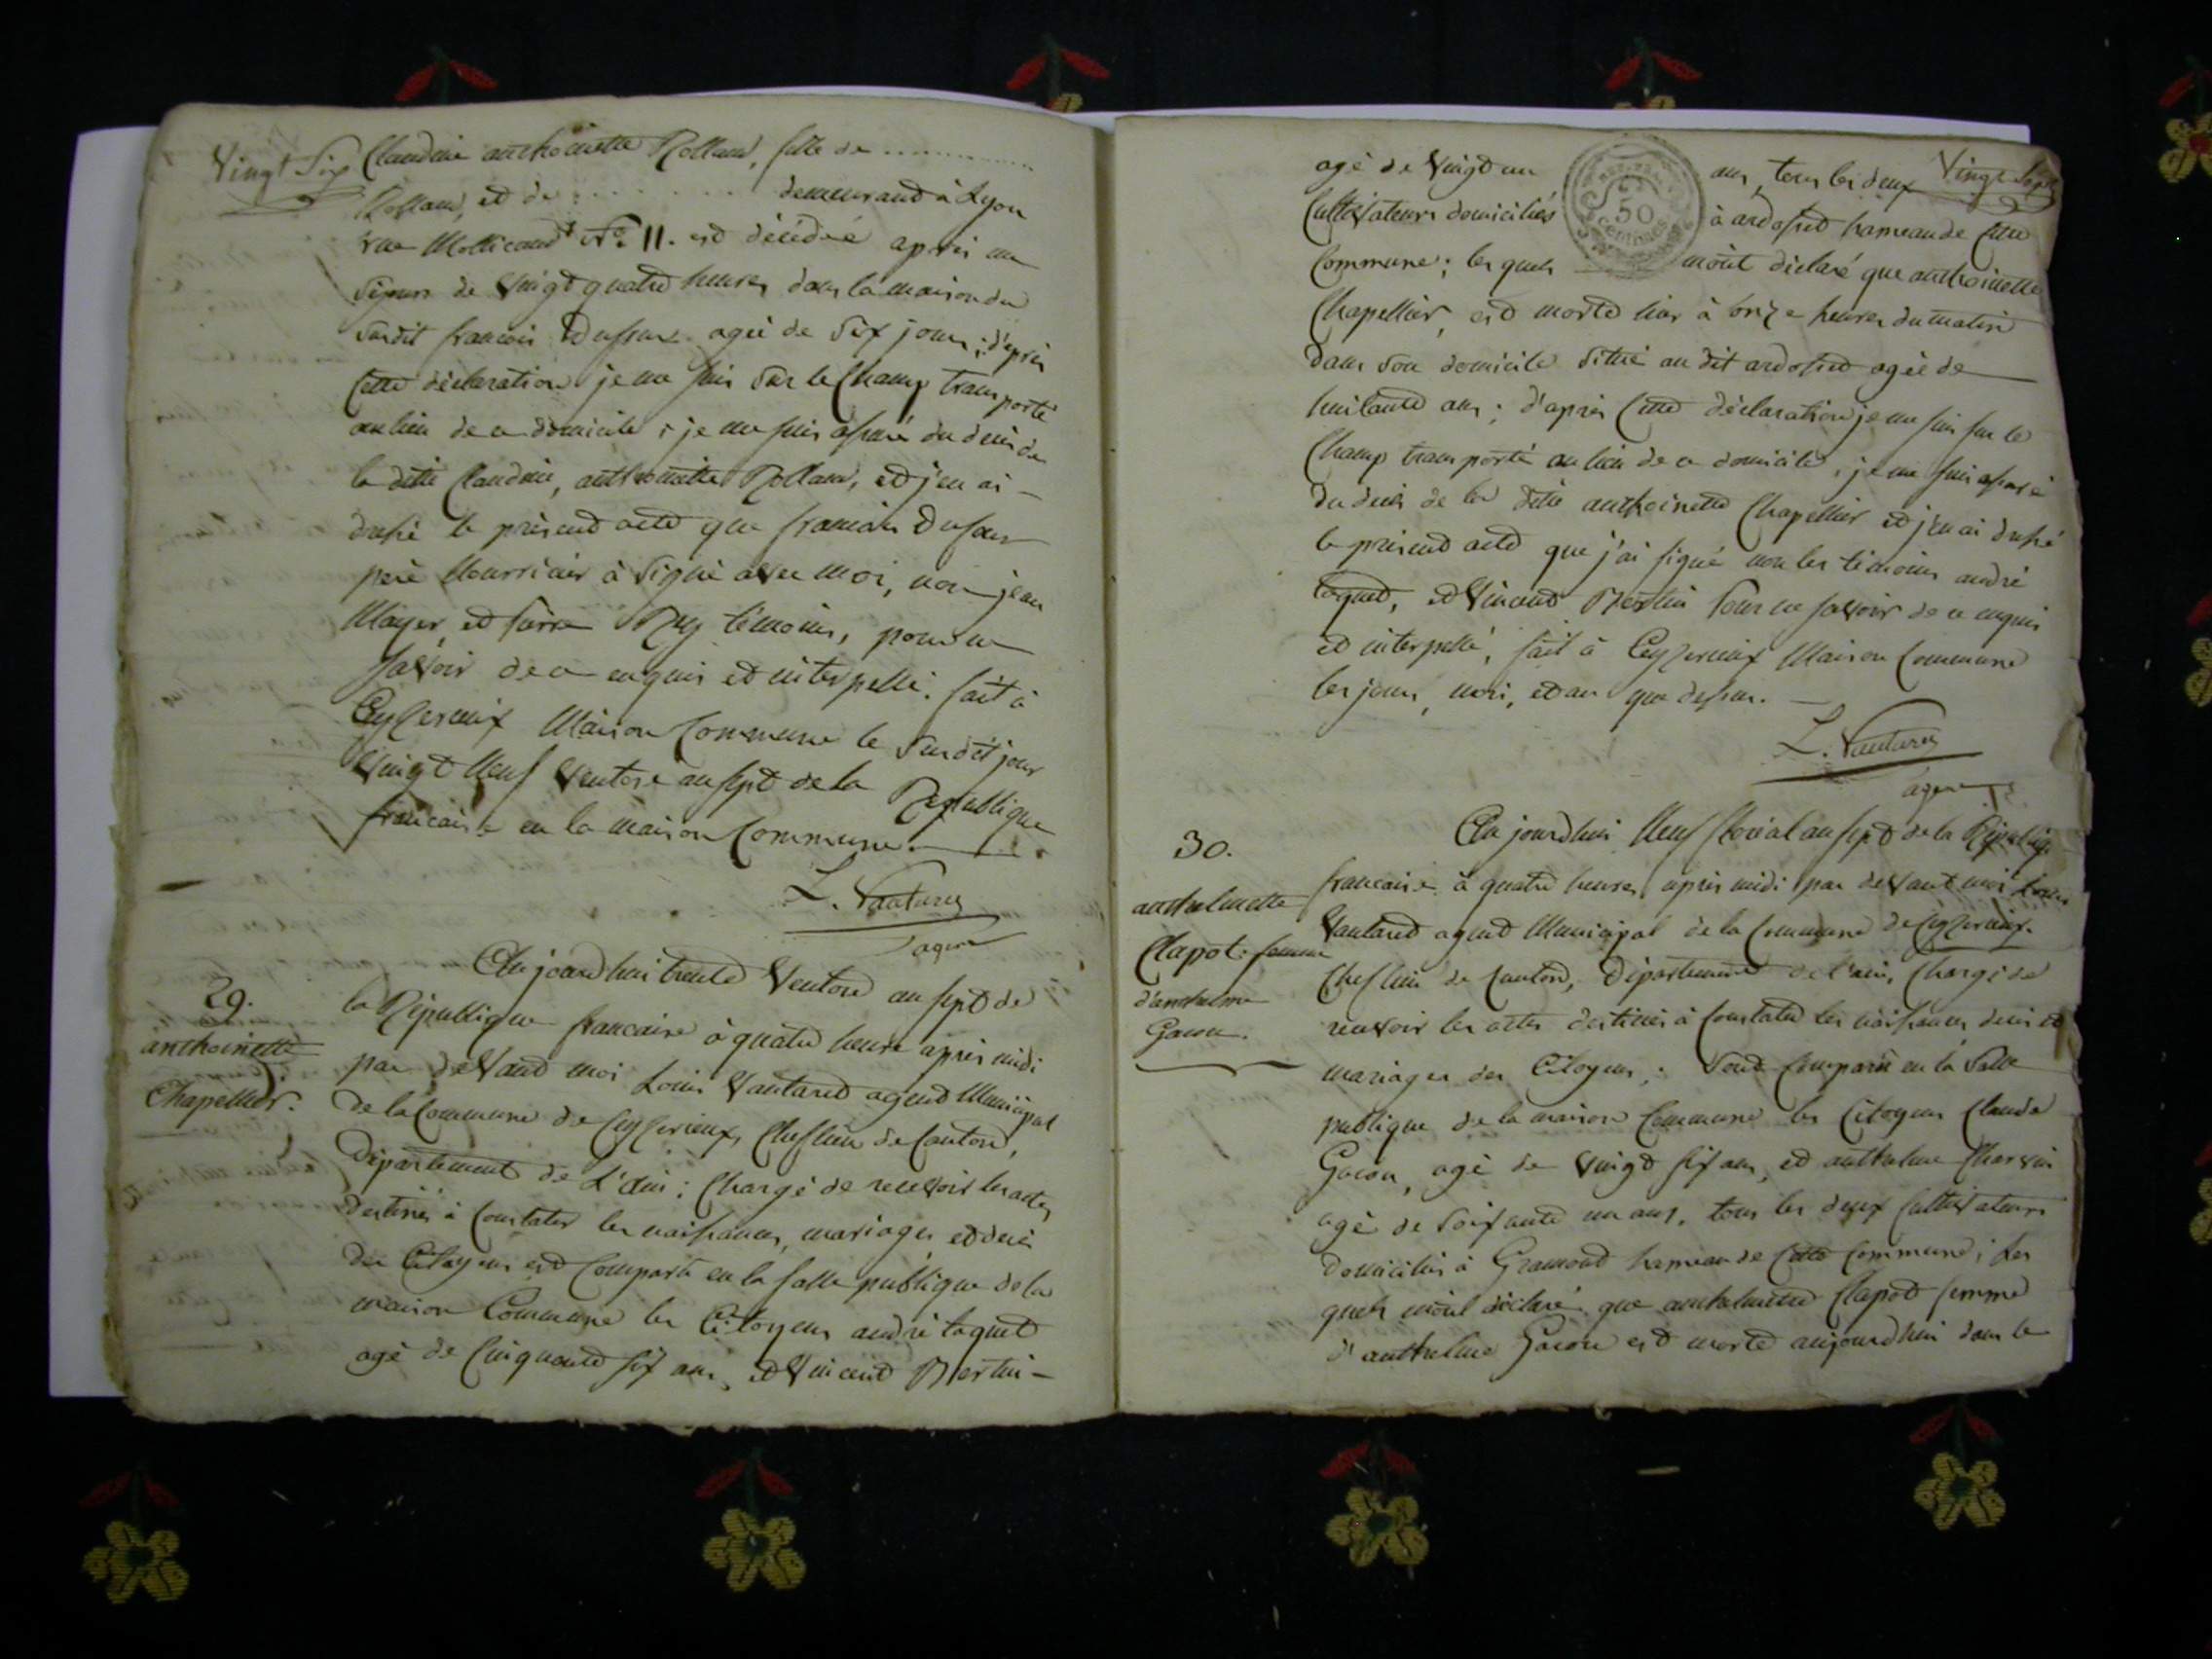 Vingt Six
Claudine anthoinette Rolland, fille de ............
Rolland, et de ............ demeurand à Lyon
rue N° 11. est décédée apres un
séjour de vingt quatre heures dans la maison du
susdit francois Dufour agée de six jours; d'après
cette déclaration je me suis sur le Champ transporté
au lieu de ce domicile, je me suis assuré du decès de
la ditte Claudine, anthoinette Rolland, et j'en ai
dressé le présend acte que francois Dufour
père Nourricier à signé avec moi, non jean
Mayer, et témoins, pour ne
savoir de ce enquis et interpellé. fait à
Ceyzerieux Maison Commune le susdit jour
vingt Neuf Ventose an sept de la République
francaise en la maison Commune.
L. Vautaret
agent
29.
anthoinette
Chapellier.
Au jourdhui trente Ventose an sept de
la République francaise à quatre heure après midi
par devand moi Louis Vautaret agent Municipal
de la Commune de Ceyzerieux, Cheflieu de Canton,
département de L'Ain; Chargé de recevoir les actes
destinés à Constater les naissances, mariages et decès
des Citoyens est comparu en la salle publique de la
maison Commune les Citoyens andré taquet
agé de Cinquante six ans, et Vincend Bertin
Vingt Sept
agé de Vingt un ans, tous les deux
Cultivateurs domiciliés à ardosset hameau de cette
Commune; les quels m'ont déclaré que anthoinette
Chapellier, est morte hier à onze heures du matin
dans son domicile situé au dit ardosset agée de
huitante ans; d'après cette déclaration je me suis sur le
Champ transporté au lieu de ce domicile, je me suis assuré
du decès de la ditte anthoinette Chapellier et j'en ai dressé
le présend acte que j'ai signé non les témoins andré
taquet, et Vincend Bertin pour ne savoir de ce enquis
et interpellé, fait à Ceyzerieux Maison Commune
les jour, moi, et an que dessus.
L. Vautaret
agent
50
Centimes
30.
anthelmette
Clapot femme
d'anthelme
Gacon.
Au jourdhui Neuf floréal an sept de la Républiq.
francaise à quatre heures après midi par devant moi Louis
Vautaret agent Municipal de la Commune de Ceyzerieux.
Cheflieu de Canton, Département de l'ain, Chargé de
recevoir les actes destinés à Constater les naissances decès et
mariages des Citoyens; sont comparu en la salle
publique de la maison Commune les Citoyens Claude
Gacon, agé de vingt six ans, et anthelme Chervin
agé de soixante un ans, tous les deux Cultivateurs
domiciliés à Gramond hameau de cette Commune; les
quels m'ont déclaré que anthelmette Clapot femme
d'anthelme Gacon est morte aujourdhui dans le